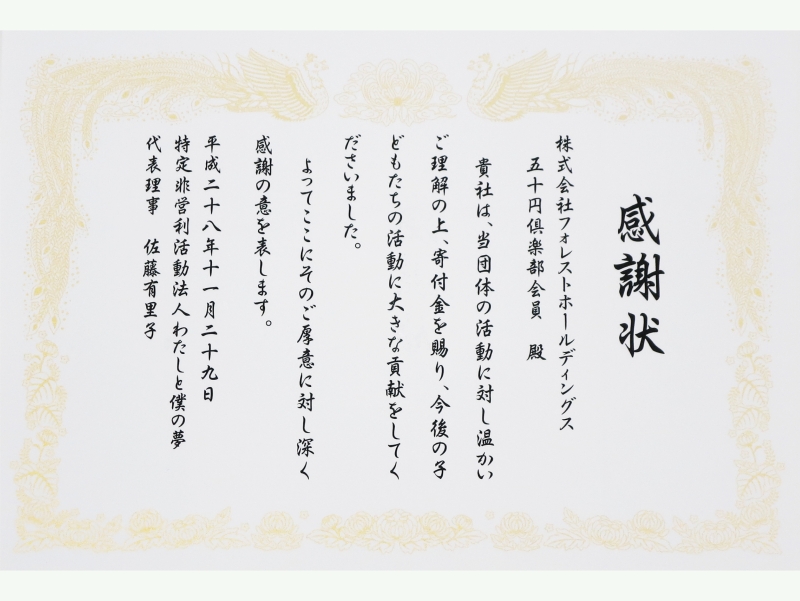 感謝状
株式会社フォレストホールディングス
五十円倶楽部会員　殿
貴社は、当団体の活動に対し温かい
ご理解の上、寄付金を賜り、今後の子
どもたちの活動に大きな貢献をしてく
ださいました。
よってここにそのご厚意に対し深く
感謝の意を表します。
平成二十八年十一月二十九日
特定非営利活動法人わたしと僕の夢
代表理事　佐藤有里子